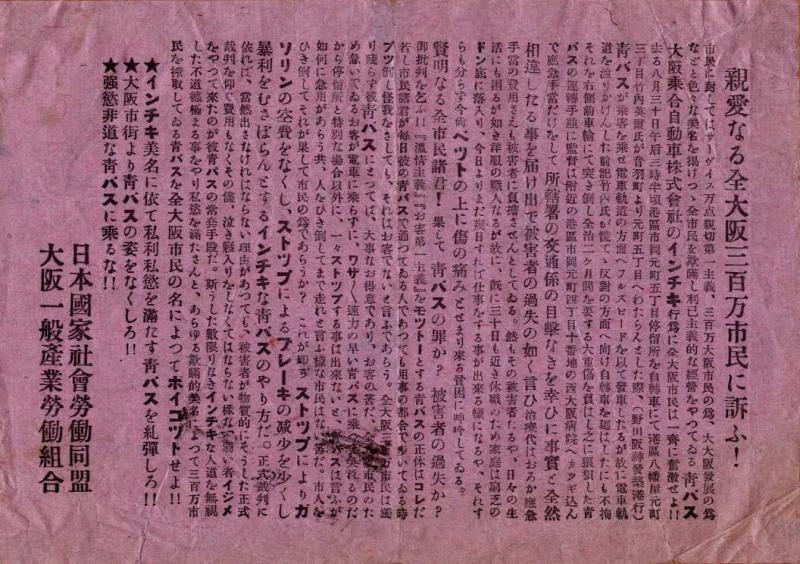 親愛なる全大阪三百万市民に訴ふ！
市民に對してはサーヴイス万点親切第一主義、三百万大阪市民の爲、大大阪發展の爲
などと色々な美名を揚げつゝ全市民を欺瞞し利己主義的な經營をやつてゐる靑バス
大阪乘合自動車株式會社のインチキ行爲に全大阪市民は一齊に奮激せよ!!
去る八月三十日午后三時半頃港區市岡元町五丁目停留所を自轉車にて港區八幡屋元町
三丁目竹內英爾氏が音羽町より元町五丁目へわたらんとした際、（野田阪神發築港行）
靑バスが乘客を乘せ電車軌道の方面へフルスピードを以て發車したるが故に電車軌
道を渡りかけんした前記竹內氏が慌て、反對の方面へ向け自轉車を廻はしたにも不拘
それを右側前車輪にて突き倒し全治二ヶ月間を要する大重傷を負はした之に狼狽した靑
バスの運轉手並に監督は附近の港區市岡元町四丁目十番地の西大阪病院へカツギ込ん
で應急手當だけをして所轄署の交通係の目擊なきを幸ひに事實と全然
相違したる事を届け出で被害者の過失の如く言ひ治療代はおろか應急
手當の費用さえも被害者に負擔させんとしてゐる。然もその被害者たるや、日々の生
活にも困るが如き洋服の職人なるが故に、既に三十日も近き休職のため家庭は窮乏の
ドン底に落入り、今日よりまだ幾日すれば仕事をする事が出來る樣になるや、それす
らも分らず今尙ベツトの上に傷の痛みとせまり來る貧困に呻吟してゐる。
賢明なる全市民諸君！果して靑バスの罪か？被害者の過失か？
御批判を乞ふ!!『溫情主義』『お客第一主義』をモツトーとする靑バスの正体はコレだ
若し市民諸君が每日彼の靑バスで通つてゐる人であつても用事の都合で歩いてゐる時
ブツ倒し怪我をしても、それはお客でないと言ふであらう。全大阪三百万市民は獨
り殘らず彼靑バスにとつては、大事なお得意であり、お客の筈だ、全市民のた
め急いでゐるお客が電車に乘らずに、ワザ〱速力の早い靑バスに乘
から停留所と特別な場合以外に、一々ストツプする事は出來ないと、
如何に急用があらう共、人をひき倒してまで走れと言ふ樣な市民はない筈だ。市人を
ひき倒してそれが果して市民の爲であらうか？これが卽ちストツプによりガ
ソリンの空費をなくし、ストツプによるブレーキの減少を少くし
暴利をむさぼらんとするインチキな靑バスのやり方だ。正式裁判に
依れば、當然出さなければならない理由があつても、被害者が物質的にそうした正式
裁判を仰ぐ費用もなくその儘、泣き寢入りをしなくてはならない樣な弱い者イジメ
をやつて來たのが彼靑バスの常套手段だ。斯うした數限りなきインチキな人道を無視
した不道德極まる事をやり私慾を滿たさんと、あらゆる欺瞞的美名によつて三百万市
民を搾取してゐる靑バスを全大阪市民の名によつてボイコツトせよ!!
★インチキ美名に依て私利私慾を滿たす靑バスを糺彈しろ!!
★大阪市街より靑バスの姿をなくしろ!!
★强慾非道な靑バスに乘るな!!
日本國家社會勞働同盟
大阪一般產業勞働組合